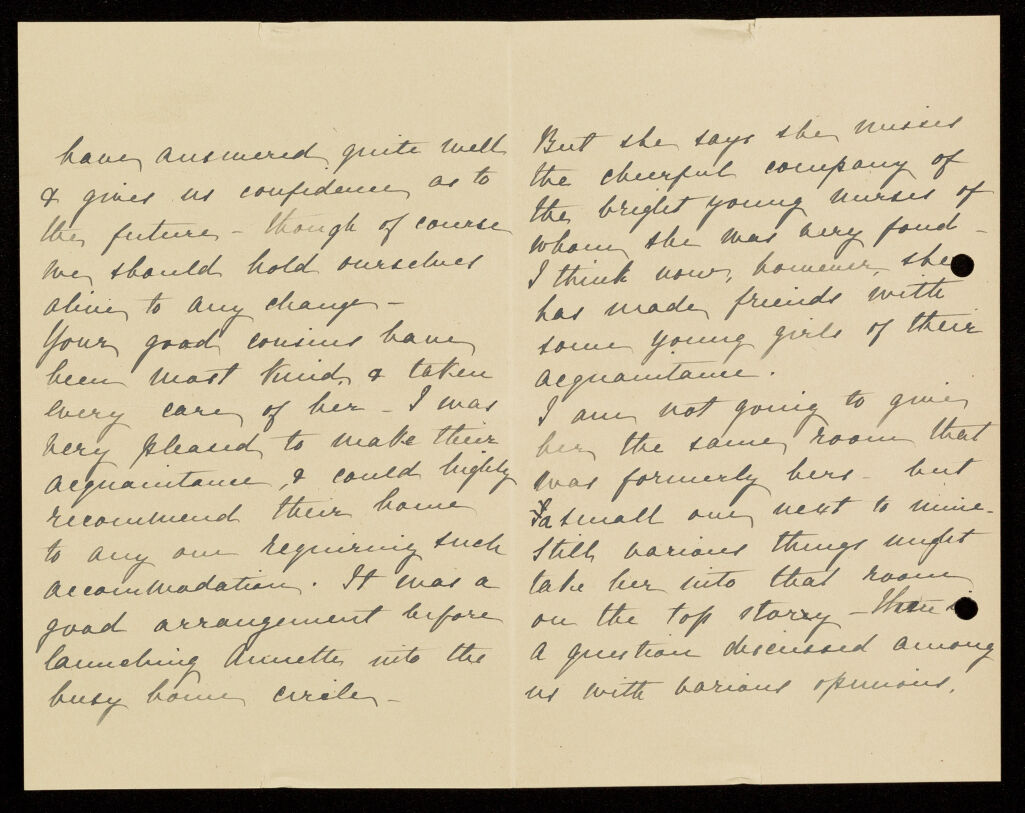 have answered quite well
& gives us confidence as to
the future - though of course
we should hold ourselves
alive to any change -
Your good cousins have
been most kind, & taken
every care of her - I was
very pleased to make their
acquaintance, & could highly
recommend their home
to any one requiring such
accommodation. It was a
good arrangement before
launching Annette into the
busy home circle -
But she says she misses
the cheerful company of
the bright young nurses of
whom she was very fond -
I think now, however, she
has made friends with
some young girls of their
acquaintance.
I am not going to give
her the same room that
was formerly hers - but
a small one next to mine -
Still various things might
take her into that room
on the top storey - There is
a question discussed among
us with various opinions.